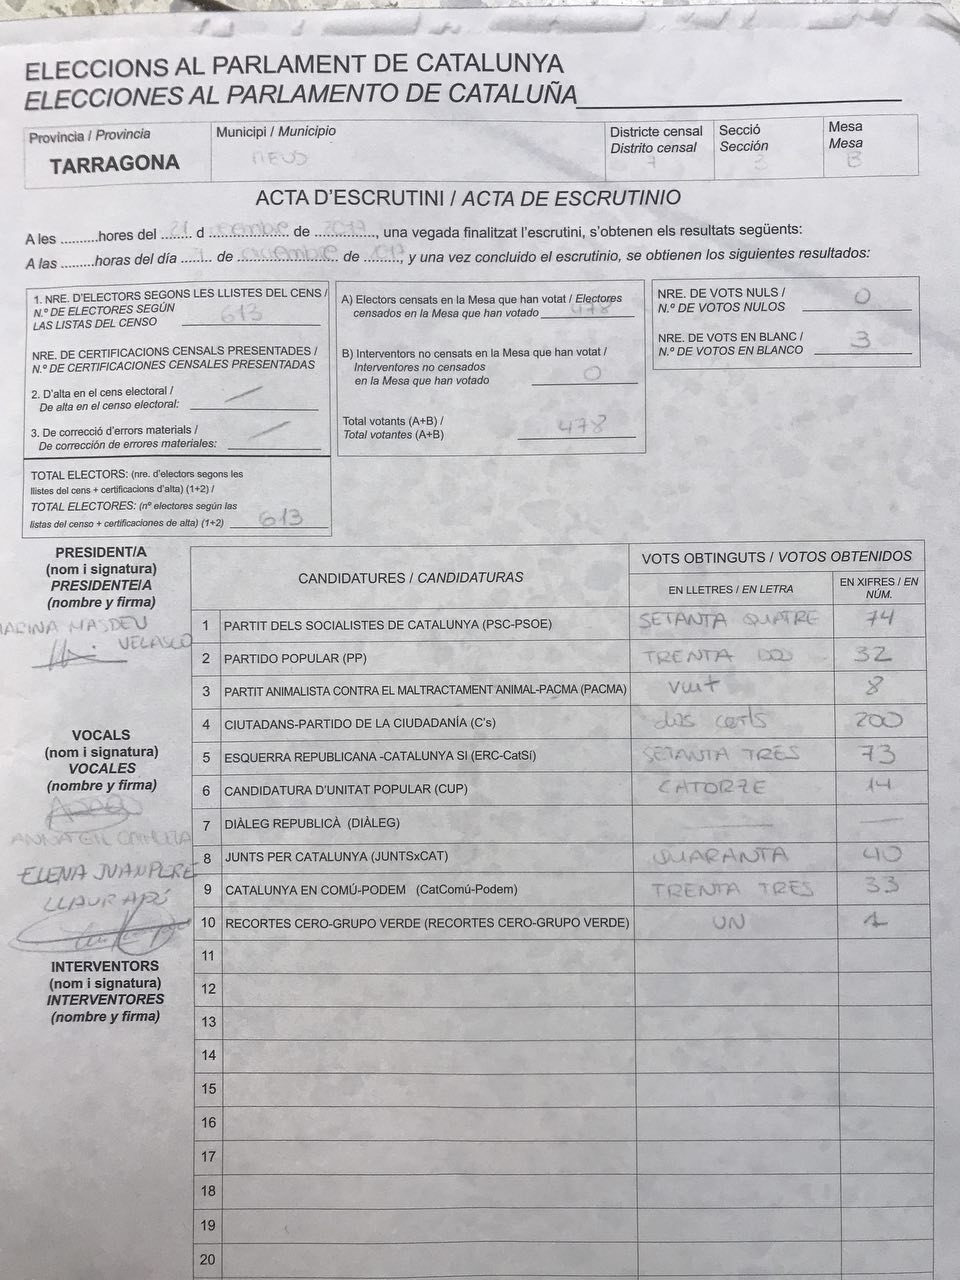 ELECCIONS AL PARLAMENT DE CATALUNYA
ELECCIONES AL PARLAMENTO DE CATALUÑA
Provincia / Provincia
TARRAGONA
Municipi / Municipio
REUS
Districte censal
Distrito censal
7
Secció
Sección
3
Mesa
Mesa
B
ACTA D'ESCRUTINI / ACTA DE ESCRUTINIO
A les .........hores del 21 d desembre de 2017, una vegada finalitzat l'escrutini, s'obtenen els resultats següents:
A las .........horas del día ....... de ....................... de ........, y una vez concluido el escrutinio, se obtienen los siguientes resultados:
1. NRE. D'ELECTORS SEGONS LES LLISTES DEL CENS /
N.º DE ELECTORES SEGÚN
LAS LISTAS DEL CENSO 613
NRE. DE CERTIFICACIONS CENSALS PRESENTADES /
N.º DE CERTIFICACIONES CENSALES PRESENTADAS
2. D'alta en el cens electoral /
De alta en el censo electoral: /
3. De correcció d'errors materials /
De corrección de errores materiales: /
TOTAL ELECTORS: (nre. d'electors segons les
llistes del cens + certificacions d'alta) (1+2) /
TOTAL ELECTORES: (nº electores según las
listas del censo + certificaciones de alta) (1+2) 613
A) Electors censats en la Mesa que han votat / Electores
censados en la Mesa que han votado 478
B) Interventors no censats en la Mesa que han votat /
Interventores no censados
en la Mesa que han votado 0
Total votants (A+B) /
Total votantes (A+B) 478
NRE. DE VOTS NULS /
N.º DE VOTOS NULOS 0
NRE. DE VOTS EN BLANC /
N.º DE VOTOS EN BLANCO 3
PRESIDENT/A
(nom i signatura)
PRESIDENTE/A
(nombre y firma)
MARINA MASDEU
VELASCO
VOCALS
(nom i signatura)
VOCALES
(nombre y firma)
ELENA JUANPERE
LLAURADÓ
INTERVENTORS
(nom i signatura)
INTERVENTORES
(nombre y firma)
CANDIDATURES / CANDIDATURAS
VOTS OBTINGUTS / VOTOS OBTENIDOS
EN LLETRES / EN LETRA
EN XIFRES / EN
NÚM.
1 PARTIT DELS SOCIALISTES DE CATALUNYA (PSC-PSOE) SETANTA QUATRE 74
2 PARTIDO POPULAR (PP) TRENTA DOS 32
3 PARTIT ANIMALISTA CONTRA EL MALTRACTAMENT ANIMAL-PACMA (PACMA) vuit 8
4 CIUTADANS-PARTIDO DE LA CIUDADANÍA (C's) dos cents 200
5 ESQUERRA REPUBLICANA -CATALUNYA SI (ERC-CatSí) SETANTA TRES 73
6 CANDIDATURA D'UNITAT POPULAR (CUP) CATORZE 14
7 DIÀLEG REPUBLICÀ (DIÀLEG) — —
8 JUNTS PER CATALUNYA (JUNTSxCAT) QUARANTA 40
9 CATALUNYA EN COMÚ-PODEM (CatComú-Podem) TRENTA TRES 33
10 RECORTES CERO-GRUPO VERDE (RECORTES CERO-GRUPO VERDE) UN 1
11
12
13
14
15
16
17
18
19
20